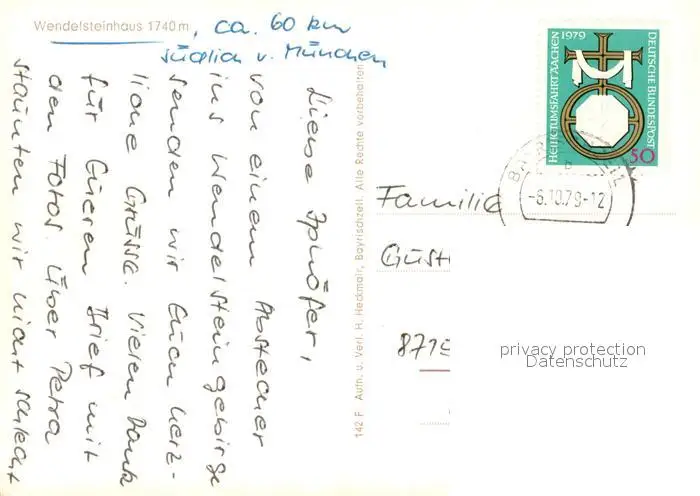 Wendelsteinhaus 1740 m, ca. 60 km
südlich v. München
Liebe
von einem Abstecher
ins Wendelsteingebirge
senden wir Euch herz-
liche Grüsse. Vielen Dank
für Eueren Brief mit
den Fotos. Über Petra
staunten wir nicht schlecht
142 F Aufn. u. Verl. H. Heckmair, Bayrischzell. Alle Rechte vorbehalten
HEILIGTUMSFAHRT AACHEN 1979
DEUTSCHE BUNDESPOST
50
-6.10.79-12
b
Familie
Gust
8715
privacy protection
Datenschutz